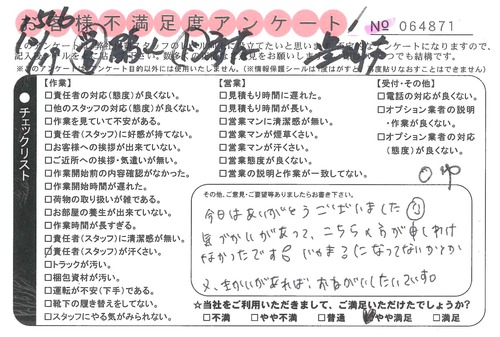 お客様不満足度アンケート
No 064871
【作業】
□責任者の対応(態度)が良くない。
□他のスタッフの対応(態度)が良くない。
□作業を見ていて不安がある。
□責任者(スタッフ)に好感が持てない。
□お客様への挨拶が出来ていない。
□ご近所への挨拶・気遣いが無い。
□作業開始前の内容確認がなかった。
□作業開始時間が遅れた。
□荷物の取り扱いが雑である。
□お部屋の養生が出来ていない。
□作業時間が長すぎる。
□責任者(スタッフ)に清潔感が無い。
☑責任者(スタッフ)が汗くさい。
□トラックが汚い。
□梱包資材が汚い。
□運転が不安(下手)である。
□靴下の履き替えをしてない。
□スタッフにやる気がみられない。
【営業】
□見積もり時間に遅れた。
□見積もり時間が長い。
□営業マンに清潔感が無い。
□営業マンが煙草くさい。
□営業マンが汗くさい。
□営業態度が良くない。
□営業の説明と作業が一致してない。
【受付・その他】
□電話の対応が良くない。
□オプション業者の説明
・作業が良くない。
□オプション業者の対応
(態度)が良くない。
●チェックリスト
その他、ご意見・ご要望等ありましたらお書き下さい。
今日はありがとうございました
気づかいがあって、こちらの方が申しわけ
なかったです。じゃまになってないかとか
又、きかいがあれば、おねがいしたいです。
☆当社をご利用いただきまして、ご満足いただけたでしょうか?
□不満 □やや不満 □普通 ☑やや満足 □満足